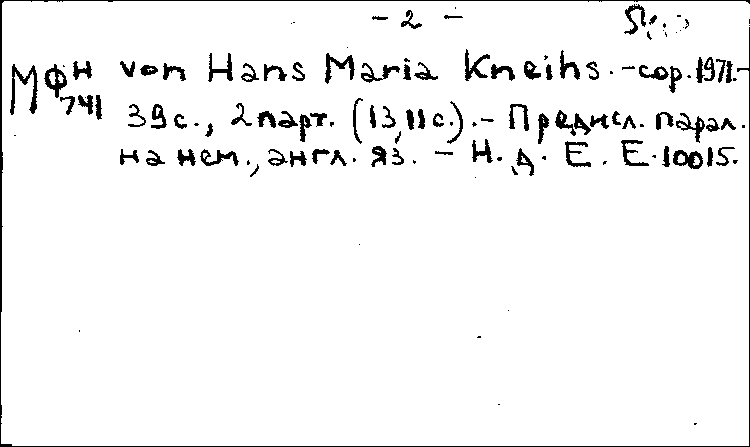 - 2 -
МФН 741
von Hans Maria Kneihs. - cop. 1971. -
39 с., 2 парт. (13, 11 с.). - Предисл. парал.
на нем., англ. яз. - Н. д. E. E. 10015.